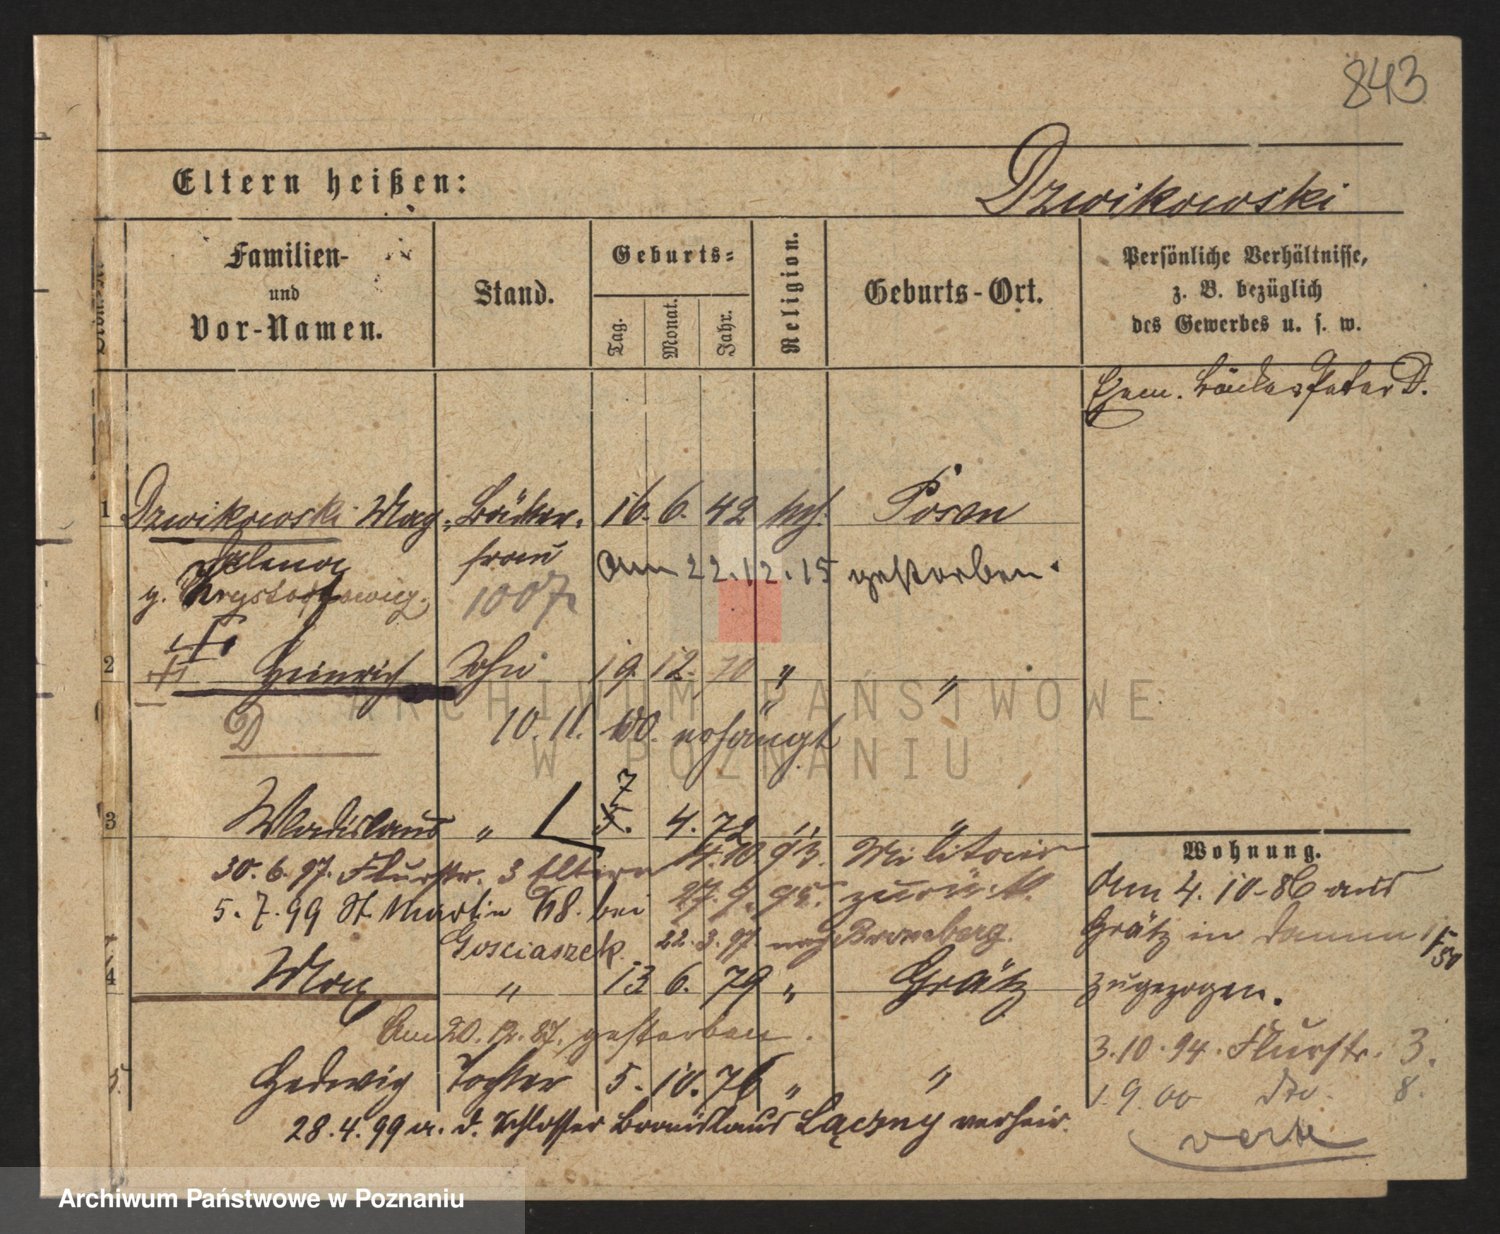 843
Eltern heißen:
Dzwikowski
Familien-
und
Vor-Namen.
Stand.
Geburts-
Tag.
Monat.
Jahr.
Religion.
Geburts-Ort.
Persönliche Verhältnisse,
z. B. bezüglich
des Gewerbes u. s. w.
Ehem. Bäcker Peter D.
1 Dzwikowski Mag- Bäcker- 16. 6. 42 kath. Posen
dalena frau am 22.12.15 gestorben.
g. 1007
2 Heinrich Sohn 19. 12. 70 " "
D 10. 11. 00. erhängt
7
3 Wladislaus " 4. 72 " "
4. 10 93. Militair
Wohnung.
30. 6. 97. Flurstr. 3 Eltern
27. 9. 95. zurück.
Am 4. 10. 86 aus
5. 7. 99 St. Martin 78. bei
Gosciaszek. 22. 3. 97 nach Bromberg.
Grätz in
4 Max " 13 6. 79 " Grätz
zugezogen.
Am 20. 12. 87. gestorben.
3. 10. 94. Flurstr. 3.
5. Hedwig Tochter 5. 10. 76 " "
1 9. 00 do. 8.
28. 4. 99 a. d. Schlosser Bronislaus Łączny verheir.
ARCHIWUM PAŃSTWOWE
W POZNANIU
Archiwum Państwowe w Poznaniu